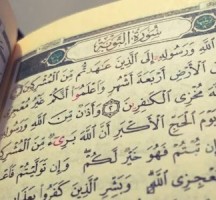 سُورَةُ التَّوْبَةِ
اللَّهِ وَرَسُولِهِ إِلَى الَّذِينَ عَٰهَدتُّم مِّنَ الْمُشْرِكِينَ
الْأَرْضِ أَرْبَعَةَ أَشْهُرٍ وَاعْلَمُوا أَنَّكُمْ غَيْرُ مُعْجِزِي
مُخْزِي الْكَٰفِرِينَ ٢ وَأَذَٰنٌ مِّنَ اللَّهِ وَرَسُولِهِ
يَوْمَ الْحَجِّ الْأَكْبَرِ أَنَّ اللَّهَ بَرِيءٌ مِّنَ
تُبْتُمْ فَهُوَ خَيْرٌ لَّكُمْ وَإِن تَوَلَّيْتُمْ
مُعْجِزِي اللَّهِ وَبَشِّرِ الَّذِينَ كَفَرُوا بِعَذَابٍ